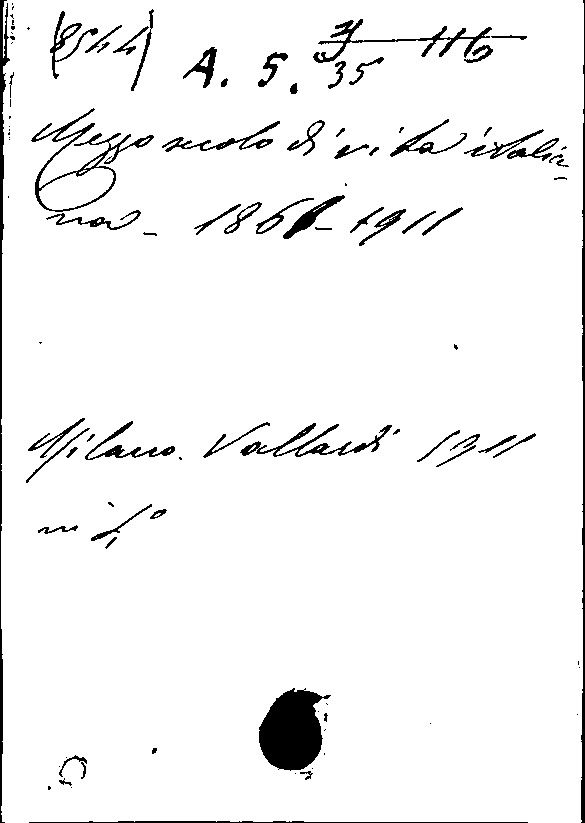 (8544) A. 5. 35
Mezzo secolo di vita italia-
na - 1861-1911
Milano. Vallardi 1911
in 4°